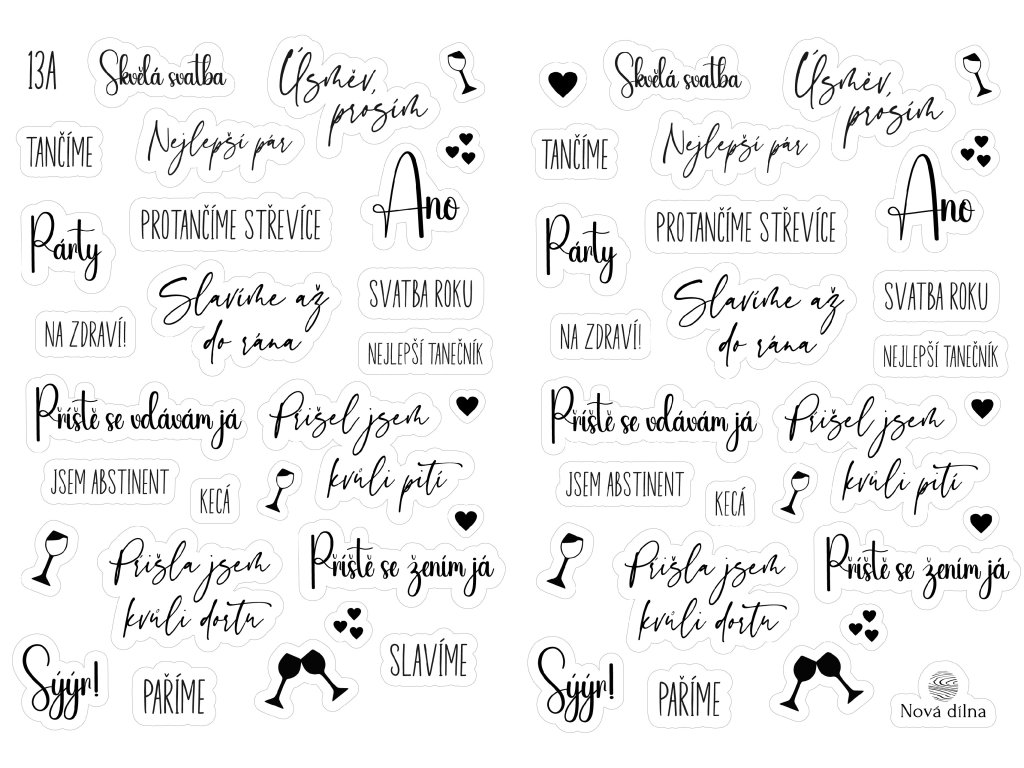 13A
Skvělá svatba
Úsměv,
prosím
TANČÍME
Nejlepší pár
Ano
PROTANČÍME STŘEVÍCE
Párty
Slavíme až
do rána
SVATBA ROKU
NA ZDRAVÍ!
NEJLEPŠÍ TANEČNÍK
Příště se vdávám já
Přišel jsem
kvůli pití
JSEM ABSTINENT
KECÁ
Přišla jsem
kvůli dortu
Příště se žením já
SLAVÍME
Sýýr!
PAŘÍME
Skvělá svatba
Úsměv,
prosím
TANČÍME
Nejlepší pár
Ano
PROTANČÍME STŘEVÍCE
Párty
Slavíme až
do rána
SVATBA ROKU
NA ZDRAVÍ!
NEJLEPŠÍ TANEČNÍK
Příště se vdávám já
Přišel jsem
kvůli pití
JSEM ABSTINENT
KECÁ
Přišla jsem
kvůli dortu
Příště se žením já
Sýýr!
PAŘÍME
Nová dílna